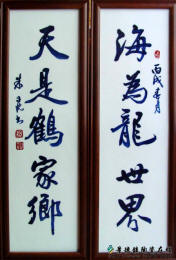 海為龍世界
丙戌春月
天是鶴家鄉